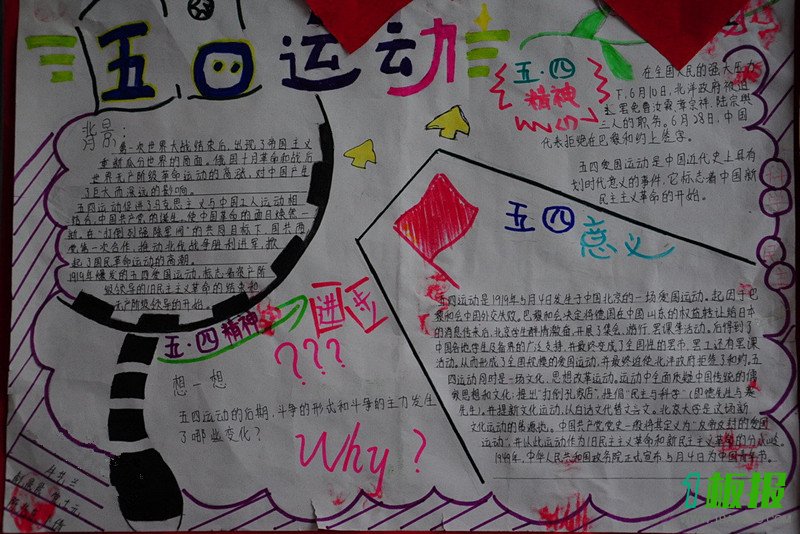 五四运动
背景:
第一次世界大战结束后,出现了帝国主义
重新瓜分世界的局面。俄国十月革命和战后
世界无产阶级革命运动的高涨,对中国产生
了巨大而深远的影响。
五四运动促进了马克思主义与中国工人运动相
结合,中国共产党的诞生,使中国革命的面目焕然一
新。在“打倒列强除军阀”的共同目标下,国共两
党第一次合作,推动北伐战争胜利进军,掀
起了国民革命运动的高潮。
1919年爆发的五四爱国运动,标志着资产阶
级领导的旧民主主义革命的结束和
无产阶级领导的开始。
五·四精神
???
想一想
五四运动的后期,斗争的形式和斗争的主力发生
了哪些变化?
Why?
五·四
精神
在全国人民的强大压力
下,6月10日,北洋政府被迫
罢免曹汝霖、章宗祥、陆宗舆
三人的职务。6月28日,中国
代表拒绝在巴黎和约上签字。
五四爱国运动是中国近代史上具有
划时代意义的事件,它标志着中国新
民主主义革命的开始。
五四意义
五四运动是1919年5月4日发生于中国北京的一场爱国运动。起因于巴
黎和会中国外交失败,巴黎和会决定将德国在中国山东的权益转让给日本
的消息传来后,北京学生群情激奋,开展了集会、游行、罢课等活动。后得到了
中国各地学生及各界的广泛支持,并最终变成了全国性的罢市、罢工还有罢课
活动。从而形成了全国规模的爱国运动,并最终迫使北洋政府拒签了和约。五
四运动同时是一场文化、思想改革运动。运动中全面质疑中国传统的儒
家思想和文化,提出“打倒孔家店”,提倡“民主与科学”
先生),并提新文化运动,以白话文代替文言文。北京大学是这场新
文化运动的策源地。中国共产党党史一般将其定义为“反帝反封的爱国
运动”,并以此运动作为旧民主主义革命和新民主主义革命的分水岭。
1949年,中华人民共和国政务院正式宣布5月4日为中国青年节。
板报